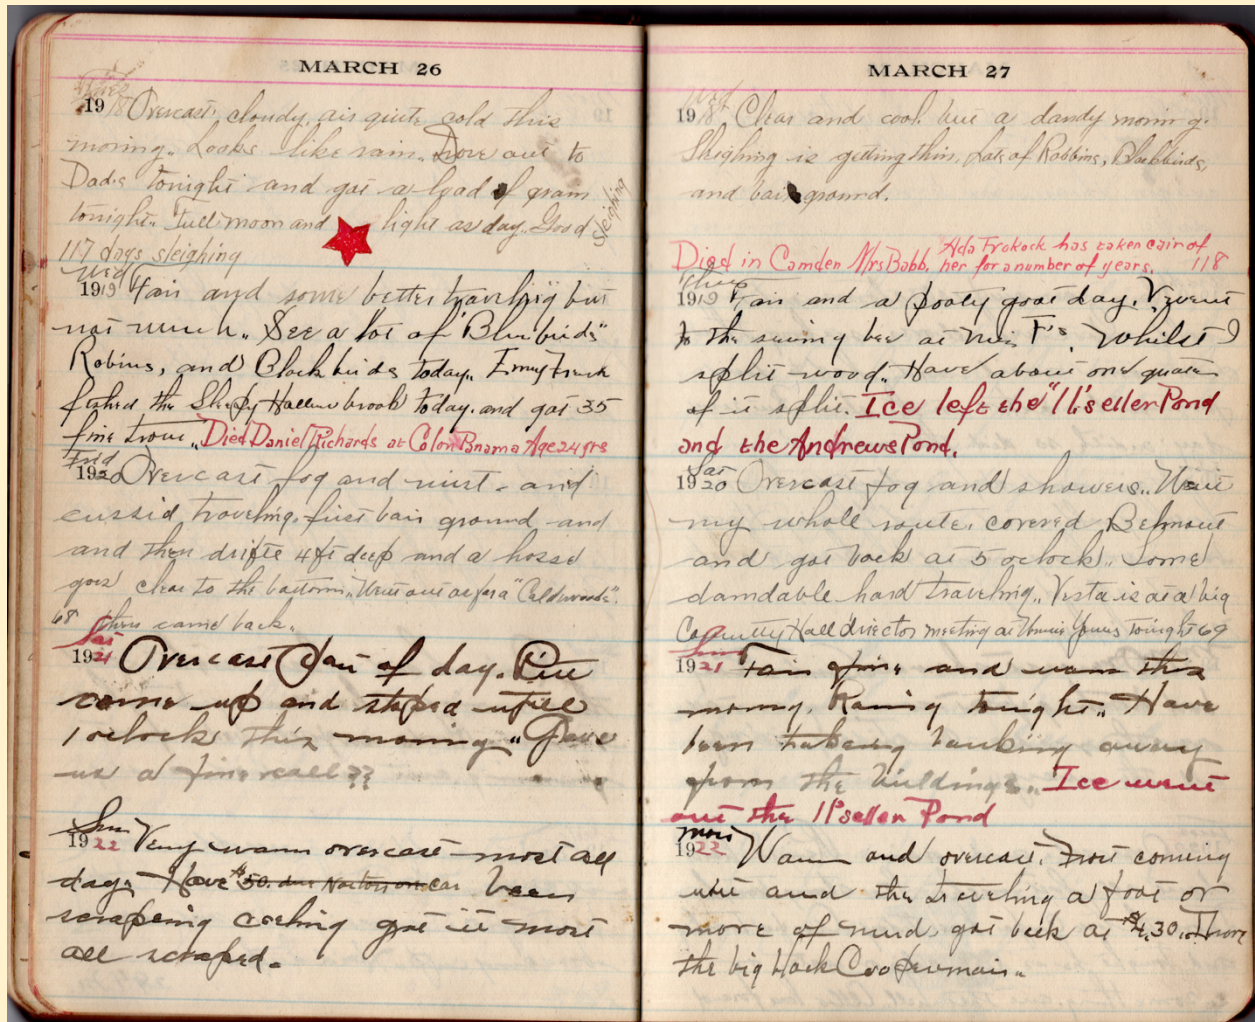 MARCH 26
Tues
1918 Overcast, cloudy, air quite cold this
morning. Looks like rain. Drove out to
Dads tonight and got a load of grain
tonight. Full moon and light as day. Good sleighing
117 days sleighing
Wed
1919 Fair and some better traveling but
not much. See a lot of "Bluebirds"
Robins, and Blackbirds today.. Frank
fished the Sleepy Hollow brook today. and got 35
fine trout.. Died Daniel Richards at Colon Pnama Age 24 yrs
Frid
1920 Overcast fog and mist. and
cussid traveling. first bair ground and
and then drifts 4 ft deep and a hosse
goes clear to the bottom.. Went out as far a "Calderwoods".
68 then came back..
Sat
1921 Overcast Part of day.
come up and stoped until
1 oclock this morning.. Gave
us a fine call??
Sun
1922 Very warm overcast most all
day. Have $50. due Norton on car been
scrapeing ceeling got it most
all scraped.
MARCH 27
Wed
1918 Clear and cool but a dandy morning.
Sleighing is getting thin. Lots of Robbins, Blackbirds,
and bair ground.
Died in Camden Mrs Babb. Ada Frohock has taken cair of
her for a number of years. 118
Thurs
1919 Fair and a pooty good day. V. went
to the sewing bee at F's. Whilst I
split wood.. Have about one quater
of it split. Ice left the "Il'seller Pond
and the Andrews Pond.
Sat
1920 Overcast fog and showers.. Went
my whole route, covered Belmont
and got back at 5 oclock.. Some
damdable hard traveling.. Vesta is at a big
Hall director meeting at tonight 69
Sun
1921 Fair fine and warm this
morning. Raing tonight.. Have
been takeing banking away
from the buildings.. Ice went
out the Il'seller Pond
Mon
1922 Warm and overcast. Frost coming
out and the traveling a foot or
more of mud got back at 4.30. Drove
the big hack